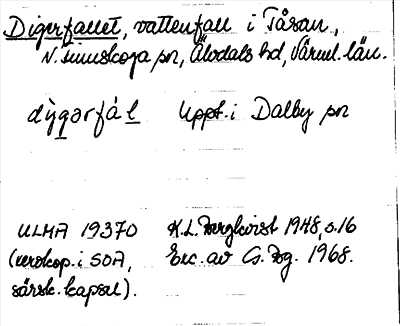 Digerfallet, vattenfall i Tåsan,
N. Finnskoga sn, Älvdals hd, Värml. län.
dỳgarfál Uppt. i Dalby sn
ULMA 19370 K.L. Bergkvist 1948, s. 16
(xerokop. i SOA, Exc. av G. Bg. 1968.
särsk. kapsel).